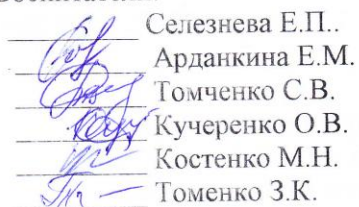 Селезнева Е.П..
Арданкина Е.М.
Томченко С.В.
Кучеренко О.В.
Костенко М.Н.
Томенко З.К.